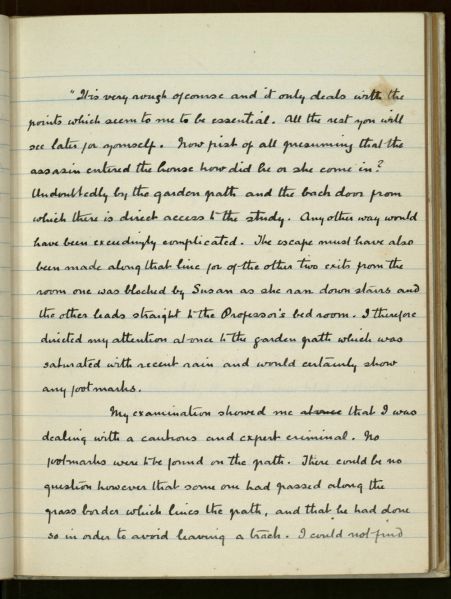 "It is very rough of course and it only deals with the
points which seem to me to be essential. All the rest you will
see later for yourself. Now first of all presuming that the
assassin entered the house how did he or she come in?
Undoubtedly by the garden path and the back door from
which there is direct access to the study. Any other way would
have been exceedingly complicated. The escape must have also
been made along that line for of the other two exits from the
room one was blocked by Susan as she ran down stairs and
the other leads straight to the Professor's bedroom. I therefore
directed my attention at once to the garden path which was
saturated with recent rain and would certainly show
any footmarks.
My examination showed me that I was
dealing with a cautious and expert criminal. No
footmarks were to be found on the path. There could be no
question however that some one had passed along the
grass border which lines the path, and that he had done
so in order to avoid leaving a track. I could not find